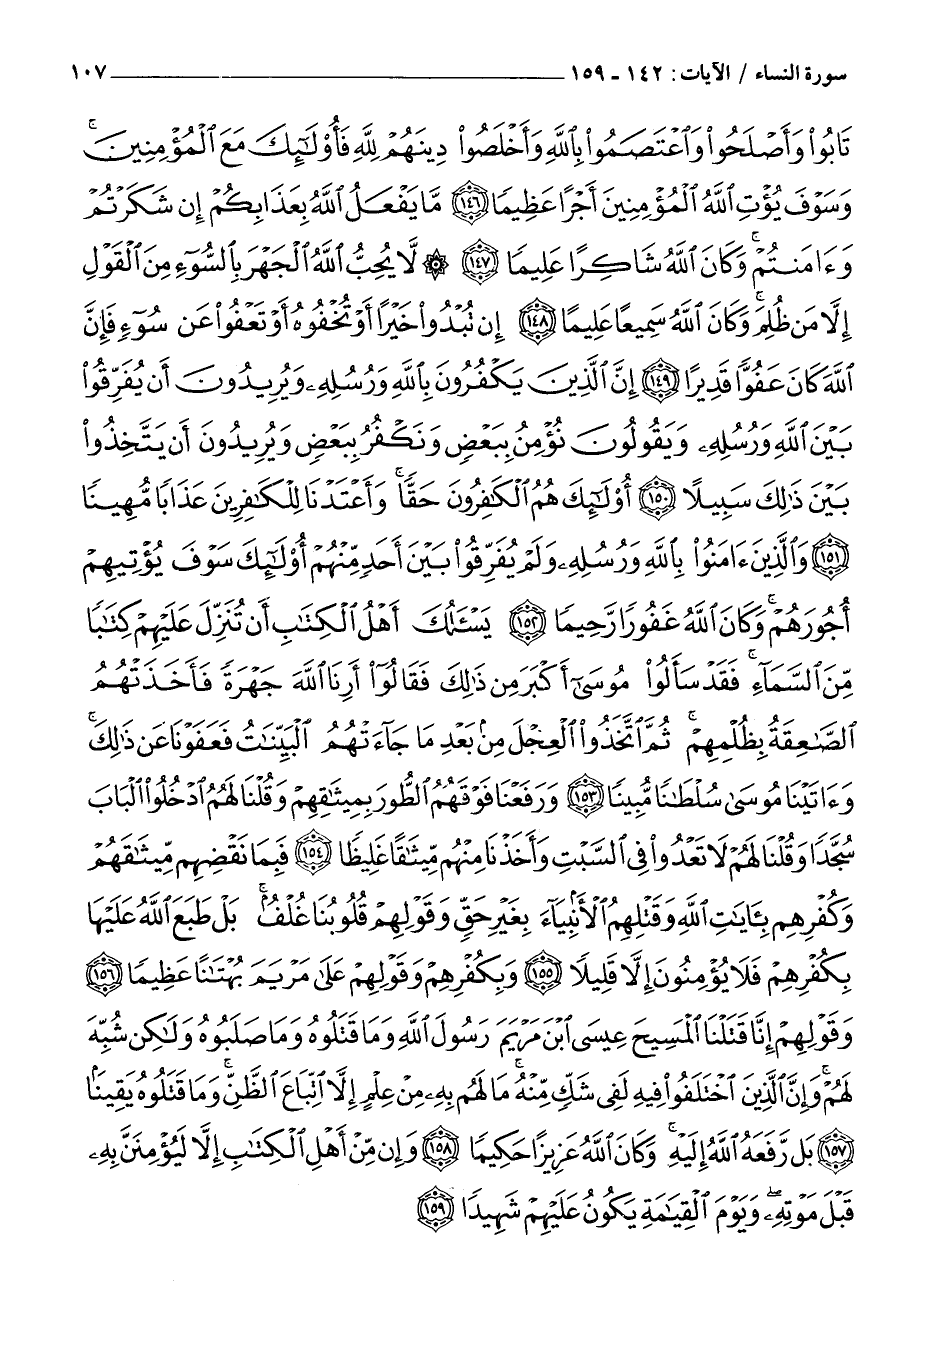 سورة النساء / الآيات : ١٤٢ - ١٥٩ ١٠٧
تَابُوا۟ وَأَصْلَحُوا۟ وَٱعْتَصَمُوا۟ بِٱللَّهِ وَأَخْلَصُوا۟ دِينَهُمْ لِلَّهِ فَأُو۟لَٰٓئِكَ مَعَ ٱلْمُؤْمِنِينَ ۚ
وَسَوْفَ يُؤْتِ ٱللَّهُ ٱلْمُؤْمِنِينَ أَجْرًا عَظِيمًا ١٤٦ مَّا يَفْعَلُ ٱللَّهُ بِعَذَابِكُمْ إِن شَكَرْتُمْ
وَءَامَنتُمْ ۚ وَكَانَ ٱللَّهُ شَاكِرًا عَلِيمًا ١٤٧ ۞ لَّا يُحِبُّ ٱللَّهُ ٱلْجَهْرَ بِٱلسُّوٓءِ مِنَ ٱلْقَوْلِ
إِلَّا مَن ظُلِمَ ۚ وَكَانَ ٱللَّهُ سَمِيعًا عَلِيمًا ١٤٨ إِن تُبْدُوا۟ خَيْرًا أَوْ تُخْفُوهُ أَوْ تَعْفُوا۟ عَن سُوٓءٍ فَإِنَّ
ٱللَّهَ كَانَ عَفُوًّا قَدِيرًا ١٤٩ إِنَّ ٱلَّذِينَ يَكْفُرُونَ بِٱللَّهِ وَرُسُلِهِۦ وَيُرِيدُونَ أَن يُفَرِّقُوا۟
بَيْنَ ٱللَّهِ وَرُسُلِهِۦ وَيَقُولُونَ نُؤْمِنُ بِبَعْضٍ وَنَكْفُرُ بِبَعْضٍ وَيُرِيدُونَ أَن يَتَّخِذُوا۟
بَيْنَ ذَٰلِكَ سَبِيلًا ١٥٠ أُو۟لَٰٓئِكَ هُمُ ٱلْكَٰفِرُونَ حَقًّا ۚ وَأَعْتَدْنَا لِلْكَٰفِرِينَ عَذَابًا مُّهِينًا
١٥١ وَٱلَّذِينَ ءَامَنُوا۟ بِٱللَّهِ وَرُسُلِهِۦ وَلَمْ يُفَرِّقُوا۟ بَيْنَ أَحَدٍ مِّنْهُمْ أُو۟لَٰٓئِكَ سَوْفَ يُؤْتِيهِمْ
أُجُورَهُمْ ۗ وَكَانَ ٱللَّهُ غَفُورًا رَّحِيمًا ١٥٢ يَسْـَٔلُكَ أَهْلُ ٱلْكِتَٰبِ أَن تُنَزِّلَ عَلَيْهِمْ كِتَٰبًا
مِّنَ ٱلسَّمَآءِ ۚ فَقَدْ سَأَلُوا۟ مُوسَىٰٓ أَكْبَرَ مِن ذَٰلِكَ فَقَالُوٓا۟ أَرِنَا ٱللَّهَ جَهْرَةً فَأَخَذَتْهُمُ
ٱلصَّٰعِقَةُ بِظُلْمِهِمْ ۚ ثُمَّ ٱتَّخَذُوا۟ ٱلْعِجْلَ مِنۢ بَعْدِ مَا جَآءَتْهُمُ ٱلْبَيِّنَٰتُ فَعَفَوْنَا عَن ذَٰلِكَ ۚ
وَءَاتَيْنَا مُوسَىٰ سُلْطَٰنًا مُّبِينًا ١٥٣ وَرَفَعْنَا فَوْقَهُمُ ٱلطُّورَ بِمِيثَٰقِهِمْ وَقُلْنَا لَهُمُ ٱدْخُلُوا۟ ٱلْبَابَ
سُجَّدًا وَقُلْنَا لَهُمْ لَا تَعْدُوا۟ فِى ٱلسَّبْتِ وَأَخَذْنَا مِنْهُم مِّيثَٰقًا غَلِيظًا ١٥٤ فَبِمَا نَقْضِهِم مِّيثَٰقَهُمْ
وَكُفْرِهِم بِـَٔايَٰتِ ٱللَّهِ وَقَتْلِهِمُ ٱلْأَنۢبِيَآءَ بِغَيْرِ حَقٍّ وَقَوْلِهِمْ قُلُوبُنَا غُلْفٌۢ ۚ بَلْ طَبَعَ ٱللَّهُ عَلَيْهَا
بِكُفْرِهِمْ فَلَا يُؤْمِنُونَ إِلَّا قَلِيلًا ١٥٥ وَبِكُفْرِهِمْ وَقَوْلِهِمْ عَلَىٰ مَرْيَمَ بُهْتَٰنًا عَظِيمًا ١٥٦
وَقَوْلِهِمْ إِنَّا قَتَلْنَا ٱلْمَسِيحَ عِيسَى ٱبْنَ مَرْيَمَ رَسُولَ ٱللَّهِ وَمَا قَتَلُوهُ وَمَا صَلَبُوهُ وَلَٰكِن شُبِّهَ
لَهُمْ ۚ وَإِنَّ ٱلَّذِينَ ٱخْتَلَفُوا۟ فِيهِ لَفِى شَكٍّ مِّنْهُ ۚ مَا لَهُم بِهِۦ مِنْ عِلْمٍ إِلَّا ٱتِّبَاعَ ٱلظَّنِّ ۚ وَمَا قَتَلُوهُ يَقِينًۢا
١٥٧ بَل رَّفَعَهُ ٱللَّهُ إِلَيْهِ ۚ وَكَانَ ٱللَّهُ عَزِيزًا حَكِيمًا ١٥٨ وَإِن مِّنْ أَهْلِ ٱلْكِتَٰبِ إِلَّا لَيُؤْمِنَنَّ بِهِۦ
قَبْلَ مَوْتِهِۦ ۖ وَيَوْمَ ٱلْقِيَٰمَةِ يَكُونُ عَلَيْهِمْ شَهِيدًا ١٥٩